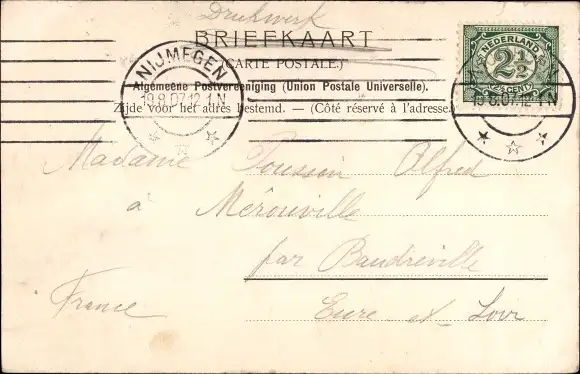 Drukwerk
BRIEFKAART
(CARTE POSTALE.)
Algemeene Postvereeniging (Union Postale Universelle).
Zijde voor het adres bestemd. — (Côté réservé à l'adresse.
NEDERLAND
2½
CENT
NIJMEGEN
19.8.07.12-1N
19.8.07.12-1N
Madame Poussin Alfred
à Mérouville
par Baudreville
France Eure et Loir